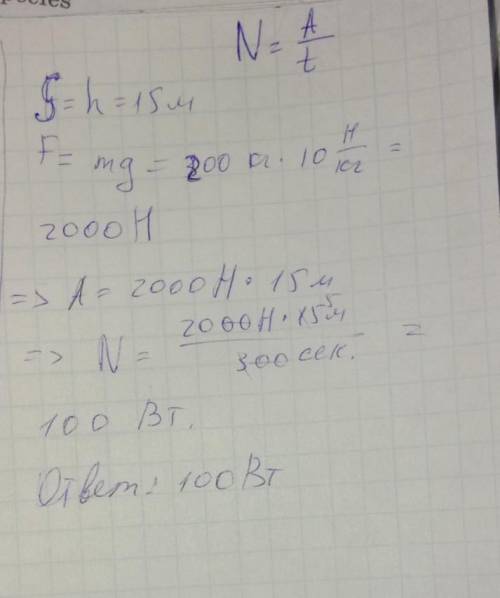 pecies
N = A/t
S = h = 15 м
F = mg = 200 кг · 10 Н/кг =
2000 Н
=> A = 2000 Н · 15 м
=> N = 2000 Н · 15 5 м / 300 сек. =
100 Вт.
Ответ: 100 Вт